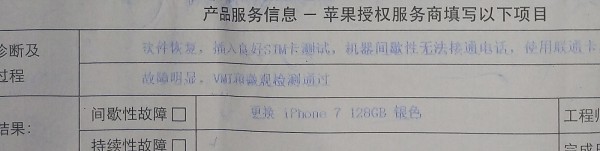 产品服务信息 － 苹果授权服务商填写以下项目
诊断及 软件恢复，插入良好SIM卡测试，机器间歇性无法接通电话，使用联通卡
过程 故障明显，VMI和外观检测通过
间歇性故障 □ 更换 iPhone 7 128GB 银色 工程师
结果：
持续性故障 □ 完成日